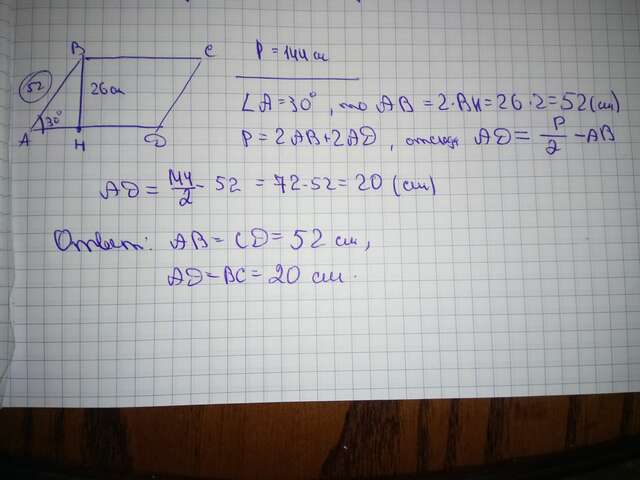 B C
52
26 см
30°
A H D
P = 144 см
∠A = 30°, то AB = 2·BH = 26·2 = 52 (см)
P = 2AB + 2AD, отсюда AD = P/2 - AB
AD = 144/2 - 52 = 72 - 52 = 20 (см)
Ответ: AB = CD = 52 см,
AD = BC = 20 см.